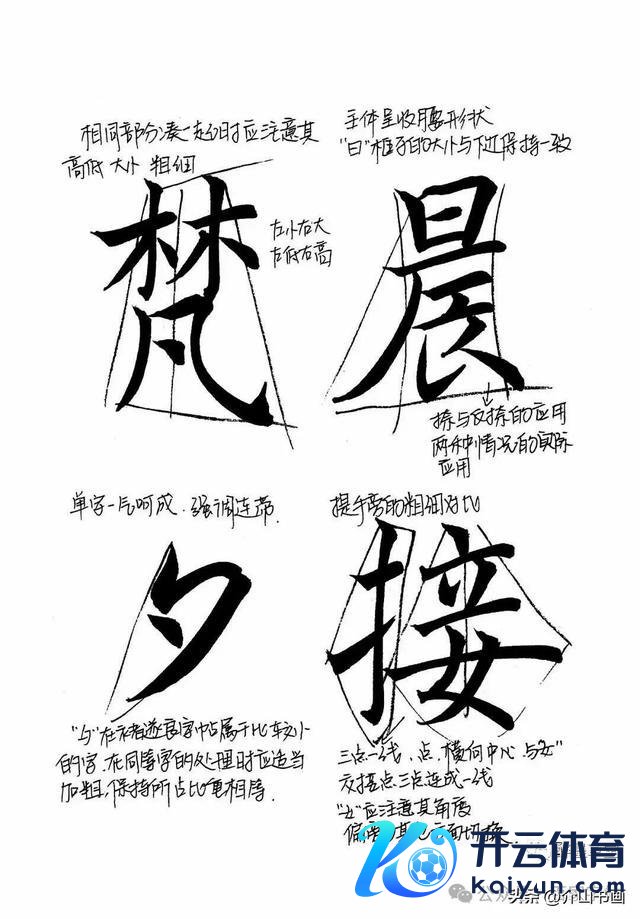 相同部分凑一起时应注意其
高低 大小 粗细
梵
左小右大
左低右高
主体呈收腰形状
"曰"框子的大小与下边保持一致
晨
捺与反捺的应用
两种情况的实际
应用
单字一气呵成,强调连带.
夕
"夕"在褚遂良字中占属于比较小
的字.在同等字的处理时应适当
加粗,保持所占比重相等.
提手旁的粗细对比
接
三点一线,点,横向中心与"女"
交接点三点连成一线
"女"应注意其角度
偏
开云体育
kaiyun.com
头条@介山书画